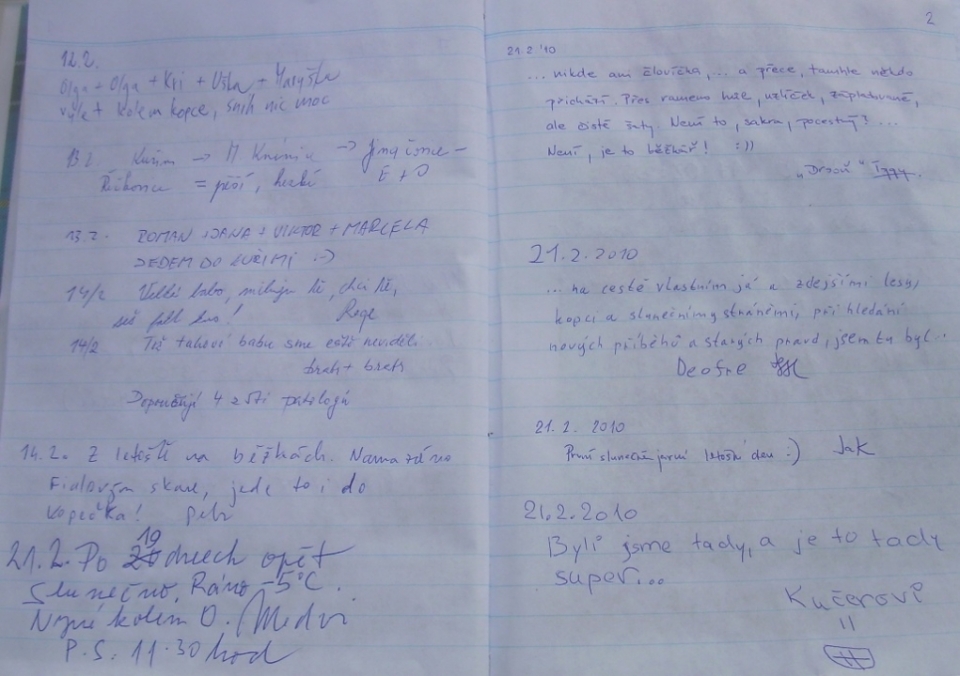 12.2.
Olga + Olga + Kri + Uška + Maryška
výlet kolem kopce, sníh nic moc
13.2. Kuřim → M Knínice → Jinačovice –
= pěší, hezké E + D
13.2. ROMAN + JANA + VIKTOR + MARCELA
JEDEM DO KUŘIMI :-)
14/2 Velká babo, miluju tě, chci tě,
seš fakt kus! Rege
14/2 Tak takovou babu sme ešte neviděli.
brach + brach
Doporučují 4 z 5ti patologů
14.2. Z letiště na běžkách. Namazáno
Fialovým skare, jede to i do
kopečka! Petr
21.2. Po 19 dnech opět
Slunečno. Ráno -5°C.
kolem O.
P.S. 11.30 hod
2
21.2.'10
... nikde ani človíčka, ... a přece, tamhle někdo
přichází. Přes rameno hůl, uzlíček, záplatované,
ale čisté šaty. Není to, sakra, pocestný? ...
Není, je to běžkář! :))
„Drsoň" Iggy.
21.2.2010
... na cestě vlastním já a zdejšími lesy,
kopci a slunečnímy stráněmi, při hledání
nových příběhů a starých pravd, jsem tu byl...
Deofre
21.2.2010
První slunečně jarní letošní den :) Jak
21.2.2010
Byli jsme tady, a je to tady
super...
Kučerovi